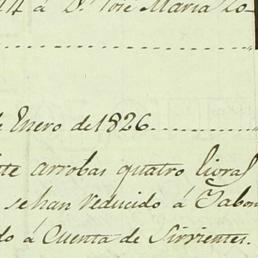 á D.n José María Lo-
Enero de 1826
te arrobas quatro livras
se han reducido á Jabon
do á Cuenta de Sirvientes.